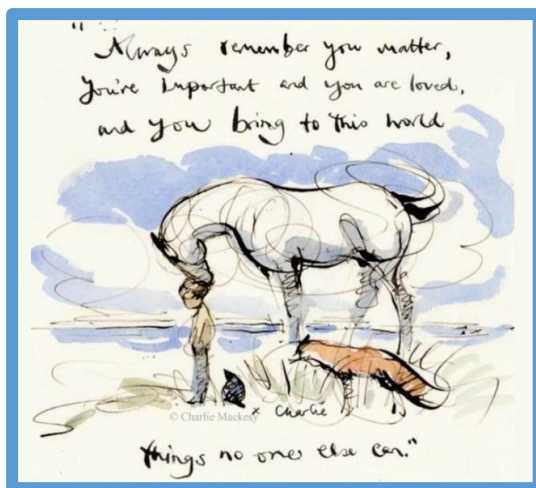 "
Always remember you matter,
you're important and you are loved,
and you bring to this world
© Charlie Mackesy
x Charlie
things no one else can."